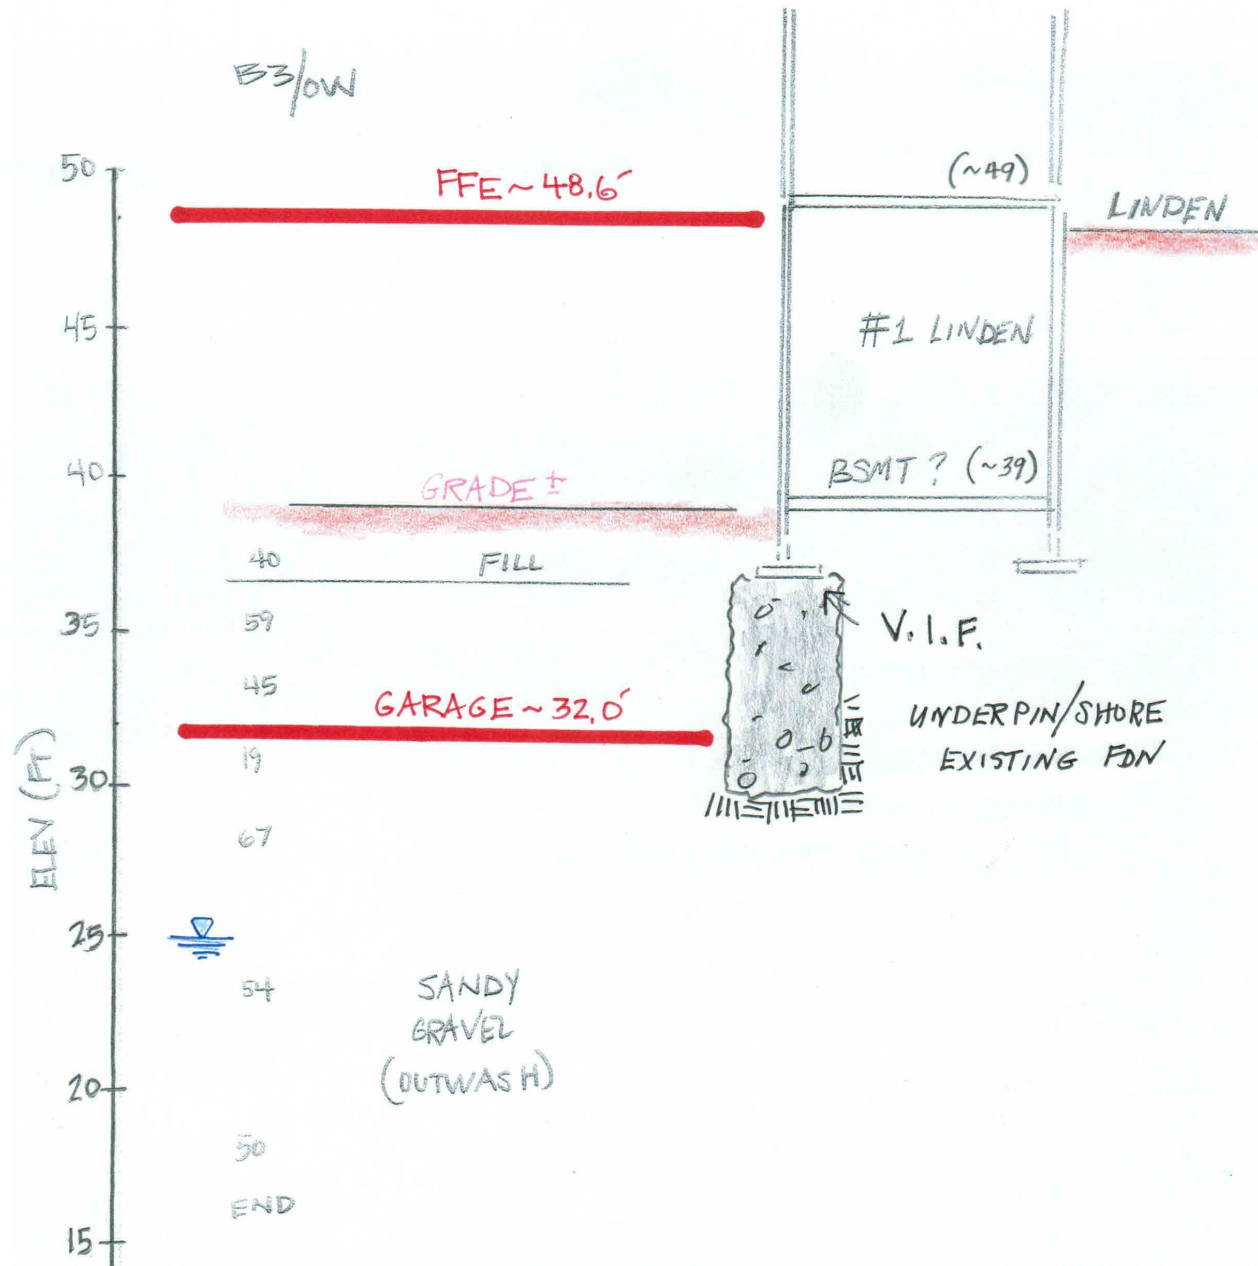 B3/OW
50
FFE ~ 48.6'
(~49)
LINDEN
45
#1 LINDEN
40
GRADE ±
BSMT ? (~39)
40
FILL
35
59
V.I.F.
45
GARAGE ~ 32.0'
UNDERPIN/SHORE
EXISTING FDN
19
ELEV (FT)
30
67
25
54
SANDY
GRAVEL
(OUTWASH)
20
50
END
15